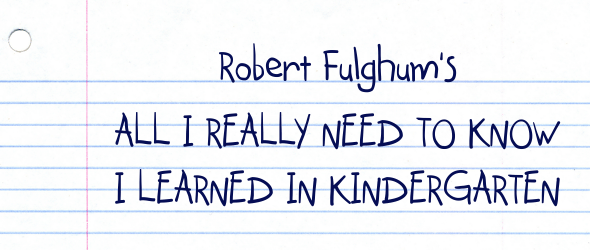 Robert Fulghum's
ALL I REALLY NEED TO KNOW
I LEARNED IN KINDERGARTEN